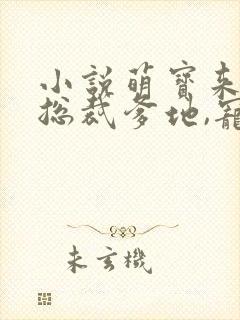 小說萌寶來
總裁爹地,寵
未玄機